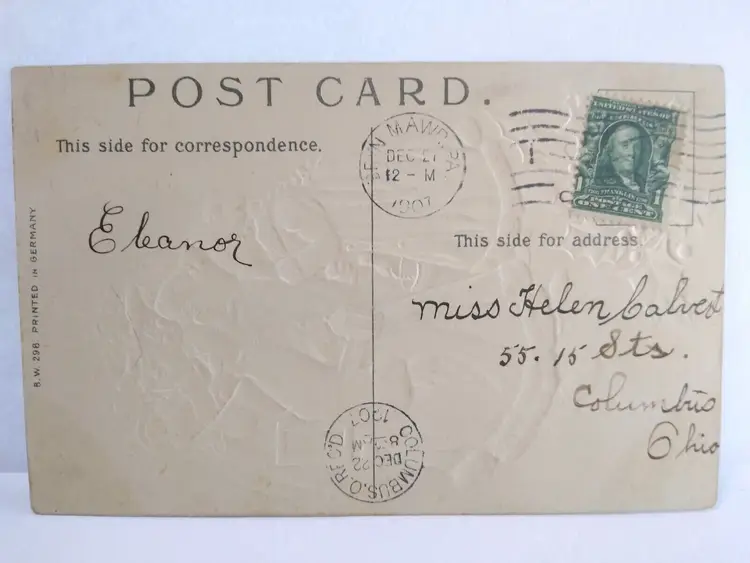 POST CARD.
This side for correspondence.
BRYN MAWR, PA.
DEC 21
12 - M
1907
UNITED STATES OF AMERICA
FRANKLIN
POSTAGE
ONE CENT
1
Eleanor
This side for address.
B.W. 298 PRINTED IN GERMANY
Miss Helen Calvert
55. 15 Sts.
Columbus
Ohio
COLUMBUS, O. REC'D
DEC 22
1907